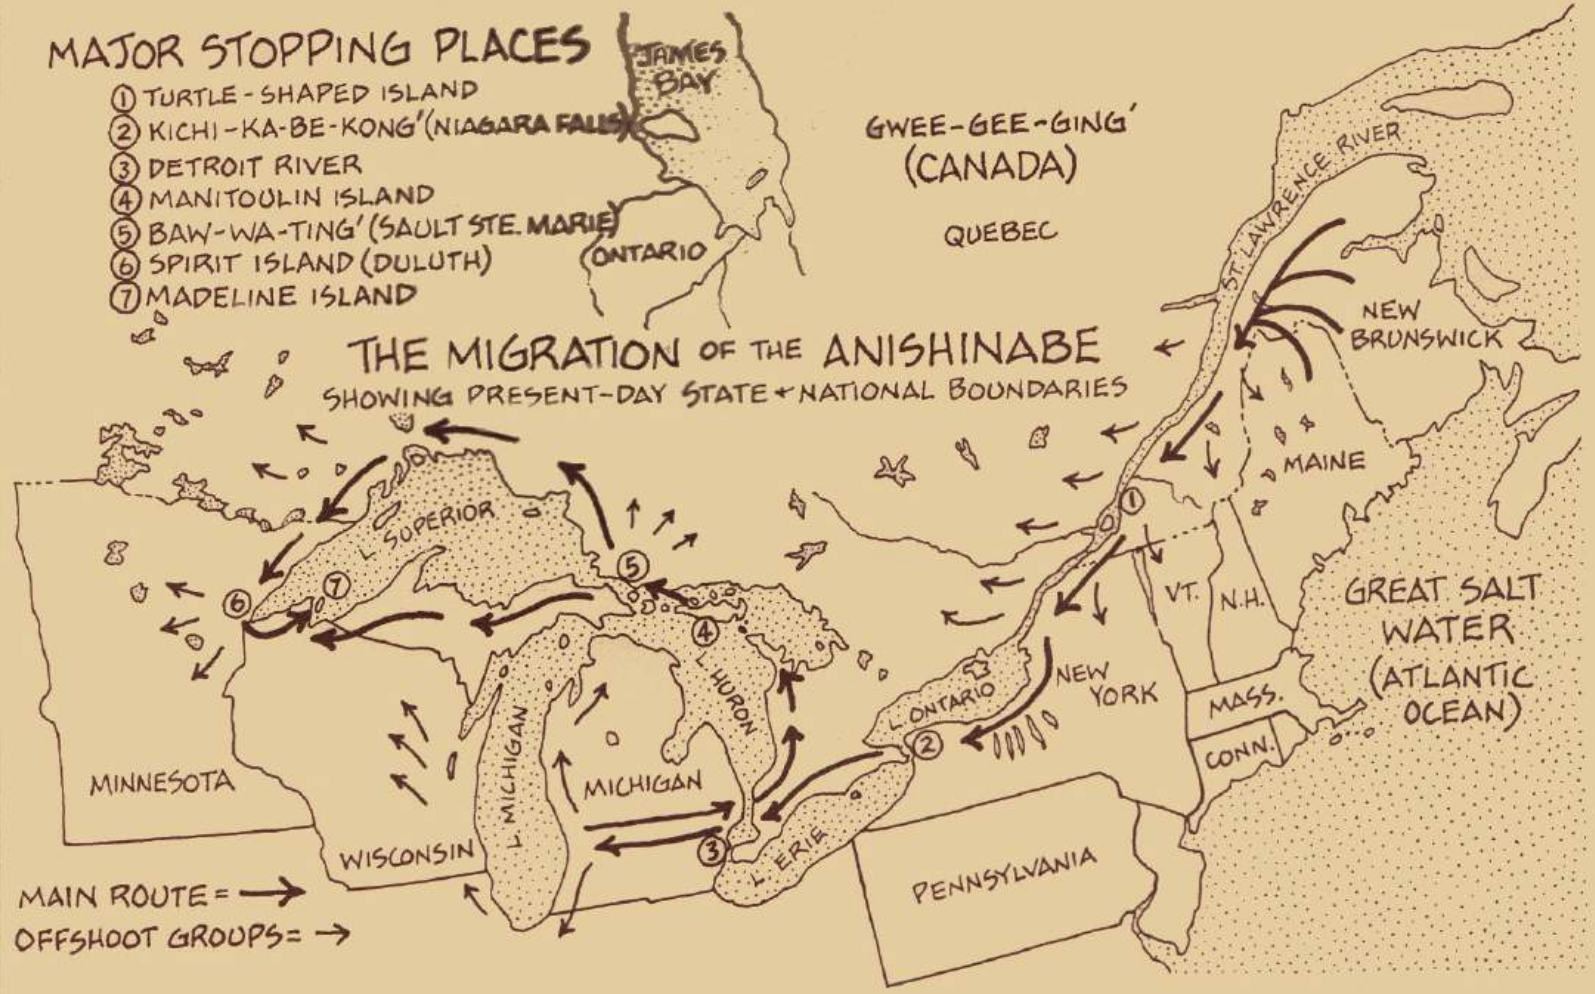 MAJOR STOPPING PLACES
① TURTLE-SHAPED ISLAND
② KICHI-KA-BE-KONG' (NIAGARA FALLS)
③ DETROIT RIVER
④ MANITOULIN ISLAND
⑤ BAW-WA-TING' (SAULT STE. MARIE)
⑥ SPIRIT ISLAND (DULUTH)
⑦ MADELINE ISLAND
JAMES
BAY
ONTARIO
GWEE-GEE-GING'
(CANADA)
QUEBEC
ST. LAWRENCE RIVER
NEW
BRUNSWICK
THE MIGRATION OF THE ANISHINABE
SHOWING PRESENT-DAY STATE + NATIONAL BOUNDARIES
MAINE
①
L SUPERIOR
⑤
⑦
⑥
④
VT.
N.H.
GREAT SALT
WATER
(ATLANTIC
OCEAN)
L HURON
L ONTARIO
NEW
YORK
MASS.
②
CONN.
L MICHIGAN
MINNESOTA
MICHIGAN
WISCONSIN
③
L ERIE
PENNSYLVANIA
MAIN ROUTE = →
OFFSHOOT GROUPS = →